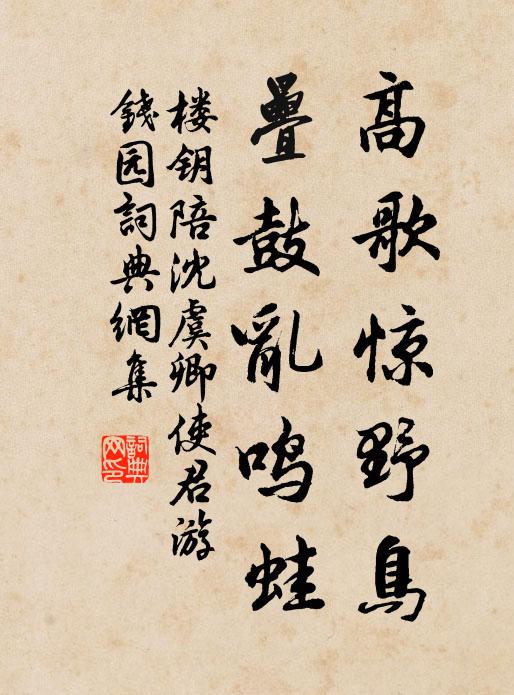 高歌惊野鳥
疊鼓亂鸣蛙
楼钥陪沈虞卿使君游
錢园詞典網集
詞典
网印